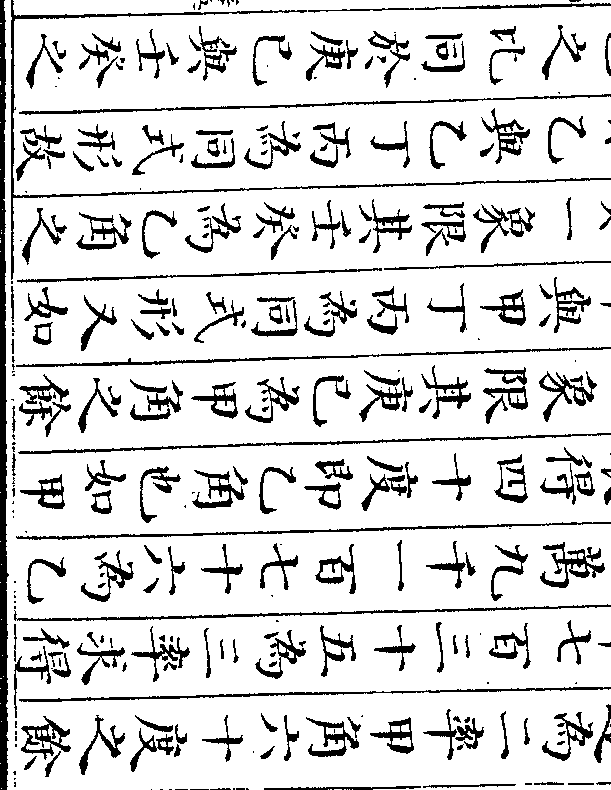 為二率甲角六十度之餘
七百三十五為三率求得
萬九千一百七十六為乙
得四十度即乙角也如甲
象限其庚己為甲角之餘
與甲丁丙為同式形又如
一象限其壬癸為乙角之
乙與乙丁丙為同式形故
之比同於庚己與壬癸之